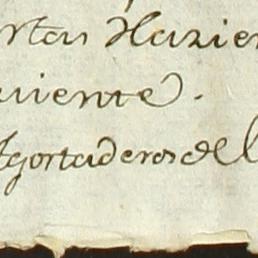 rtas Hazien
uiente.
Agortaderos de l